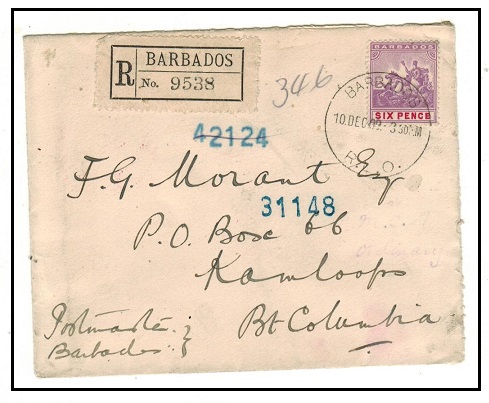 BARBADOS
R No. 9538
346
BARBADOS
SIX PENCE
BARBADOS
10 DEC 09 3 30PM
R. L. O.
42124
F. G. Morant Esq
31148
P.O. Box 66
Kamloops
Bt Columbia
Postmaster
Barbados